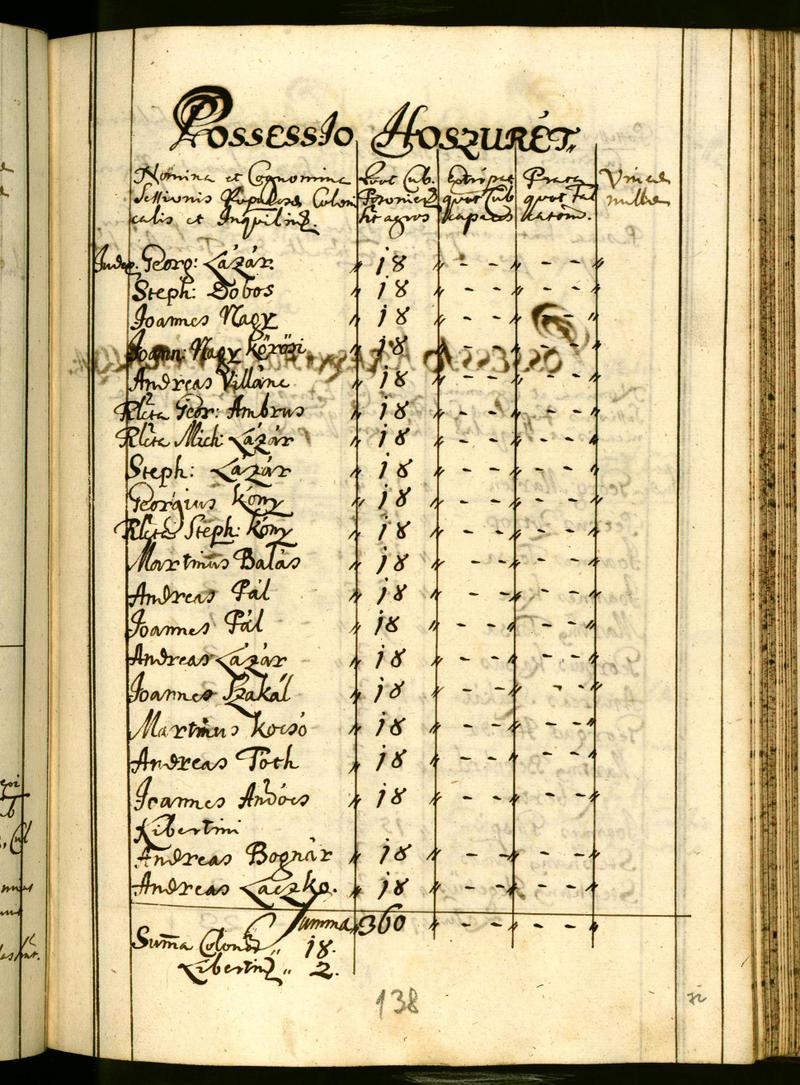 Possessio Hoszurét
Nomina et Cognomina quot Cub. Prata Vineae
Sessionis Colon quot Cub quot fal nullae
calis et Inquilin. sit agros capaces catorū.
Judex Georg: Lázár. " 18 " - - " - - "
Steph: Dobos " 18 " - - " - - "
Joannes Nagy " 18 " - - " - - "
Joann: Nagy Körösi " 18 " - - " - - "
Andreas Villáne " 18 " - - " - - "
Rlcta Geor: Ambrus " 18 " - - " - - "
Rlcta Mich: Lázár " 18 " - - " - - "
Steph: Lázár " 18 " - - " - - "
Georgius Kóny " 18 " - - " - - "
Rlcta Steph: Kóny " 18 " - - " - - "
Martinus Balás " 18 " - - " - - "
Andreas Pál " 18 " - - " - - "
Joannes Pál " 18 " - - " - - "
Andreas Lázár " 18 " - - " - - "
Joannes Szakál " 18 " - - " - - "
Martinus Kocsó " 18 " - - " - - "
Andreas Toth " 18 " - - " - - "
Joannes Andócs " 18 " - - " - - "
Libertini
Andreas Bognár " 18 " - - " - - "
Andreas Laczko. " 18 " - - " - - "
Summa " 360 " - - " - - "
Suma Colonor " 18.
Libertin " 2.
138
72